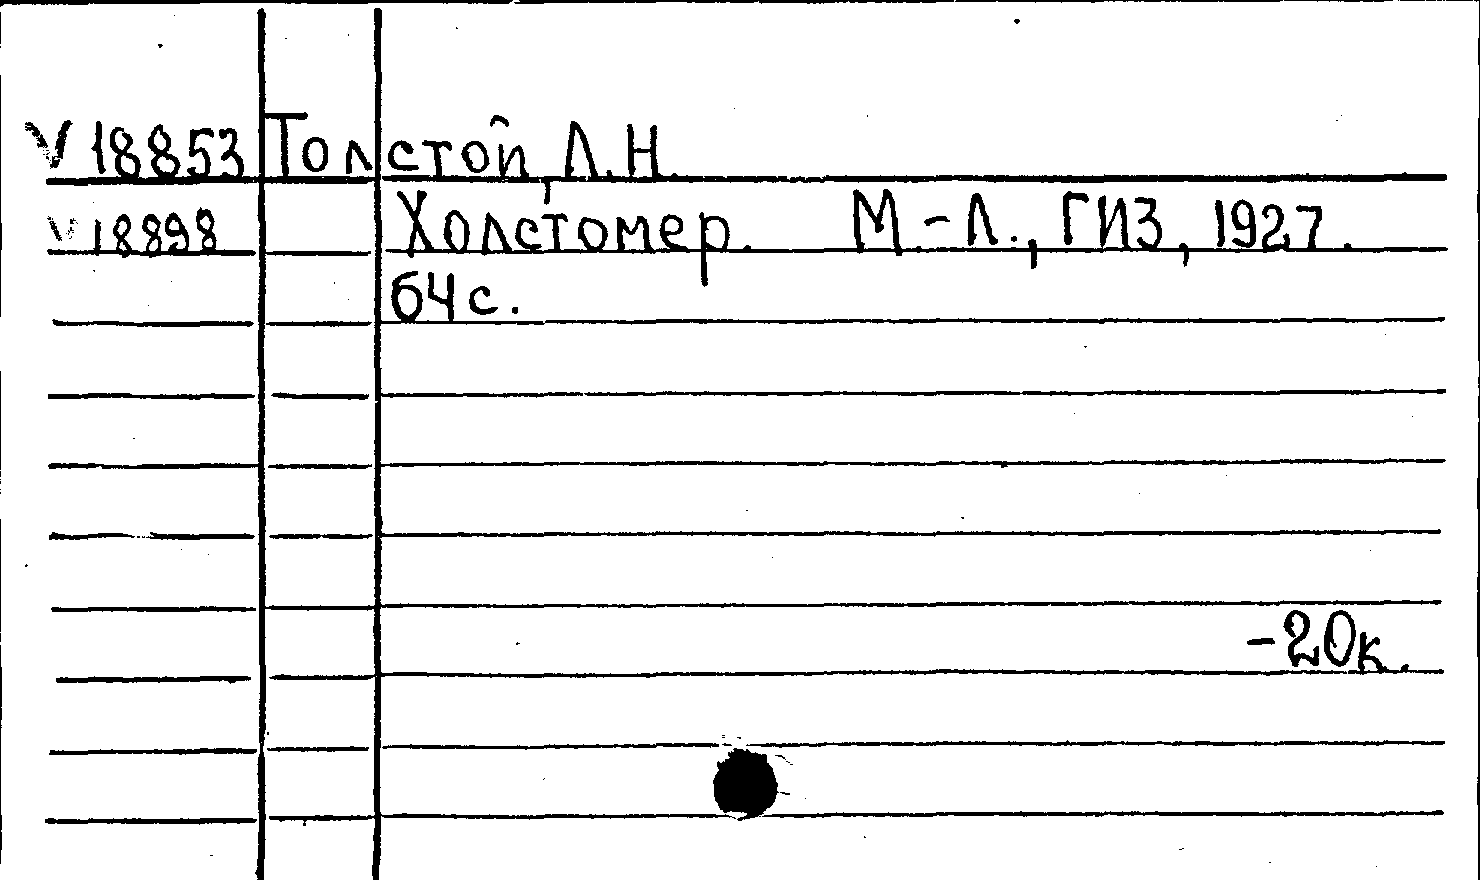 V 18853 Толстой, Л.Н.
V 18898 Холстомер. М.-Л., ГИЗ, 1927.
64 с.
-20к.